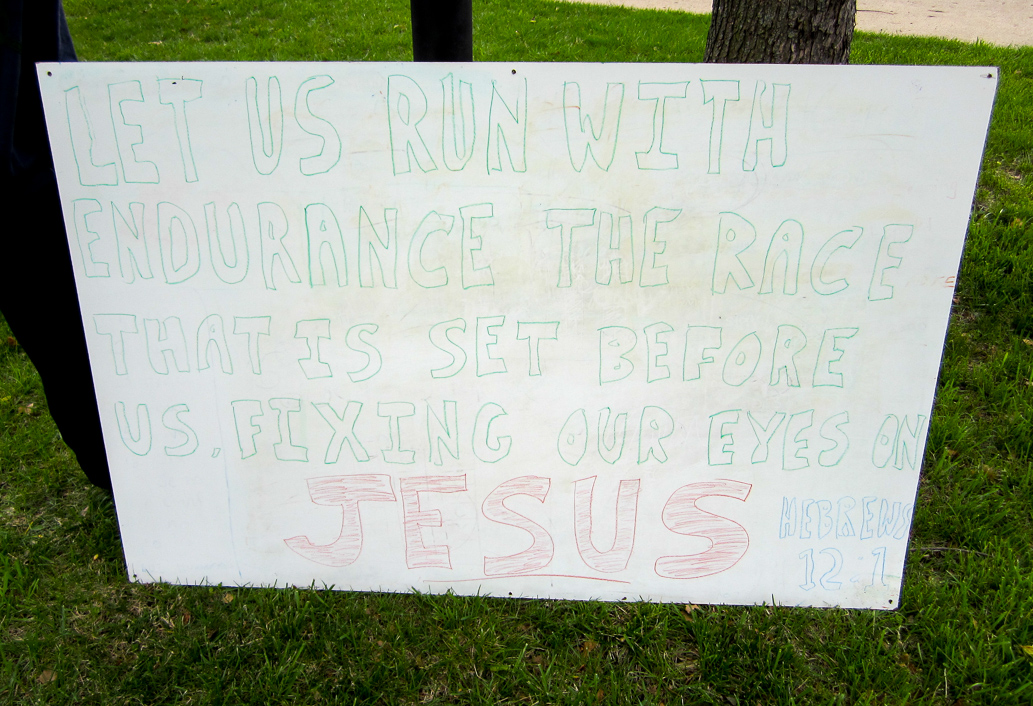 LET US RUN WITH
ENDURANCE THE RACE
THAT IS SET BEFORE
US, FIXING OUR EYES ON
JESUS
HEBRENS
12:1